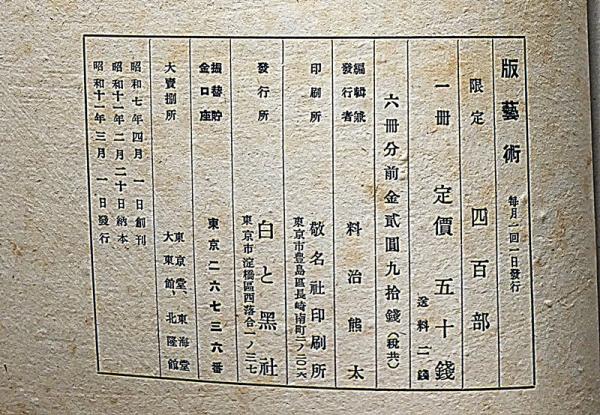 版藝術 每月一回一日發行
限定 四百部
一冊 定價 五十錢 送料二錢
六冊分前金貳圓九拾錢（稅共）
編輯兼發行者 料治熊太
印刷所 敬名社印刷所 東京市豊島區長崎南町二ノ
發行所 白と黑社 東京市淀橋區西落合一ノ三七
振替貯金口座 東京二六七三六番
大賣捌所 東京堂、東海堂 大東館、北隆館
昭和七年四月一日創刊
昭和十一年二月二十日納本
昭和十一年三月一日發行